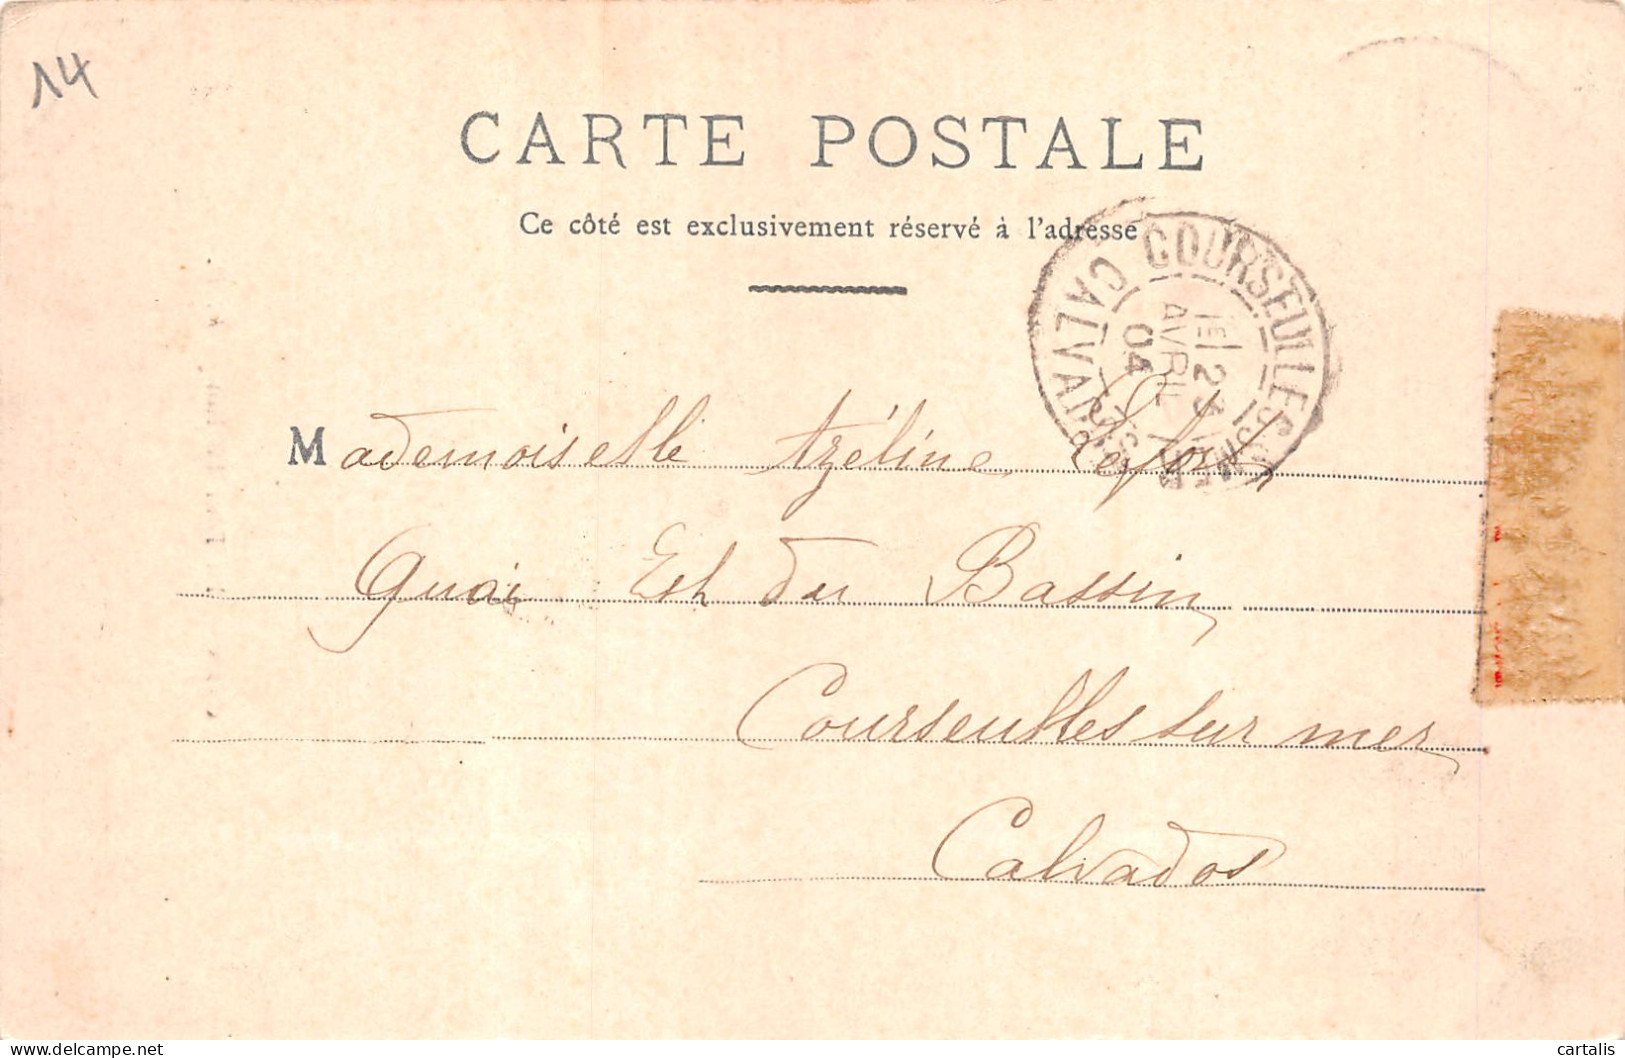 14
CARTE POSTALE
Ce côté est exclusivement réservé à l'adresse
COURSEULLES S. MER
CALVADOS
1E 23
AVRIL
04
Mademoiselle Azéline Lefort
Quai Est du Bassin
Courseulles sur mer
Calvados
delcampe.net
cartalis